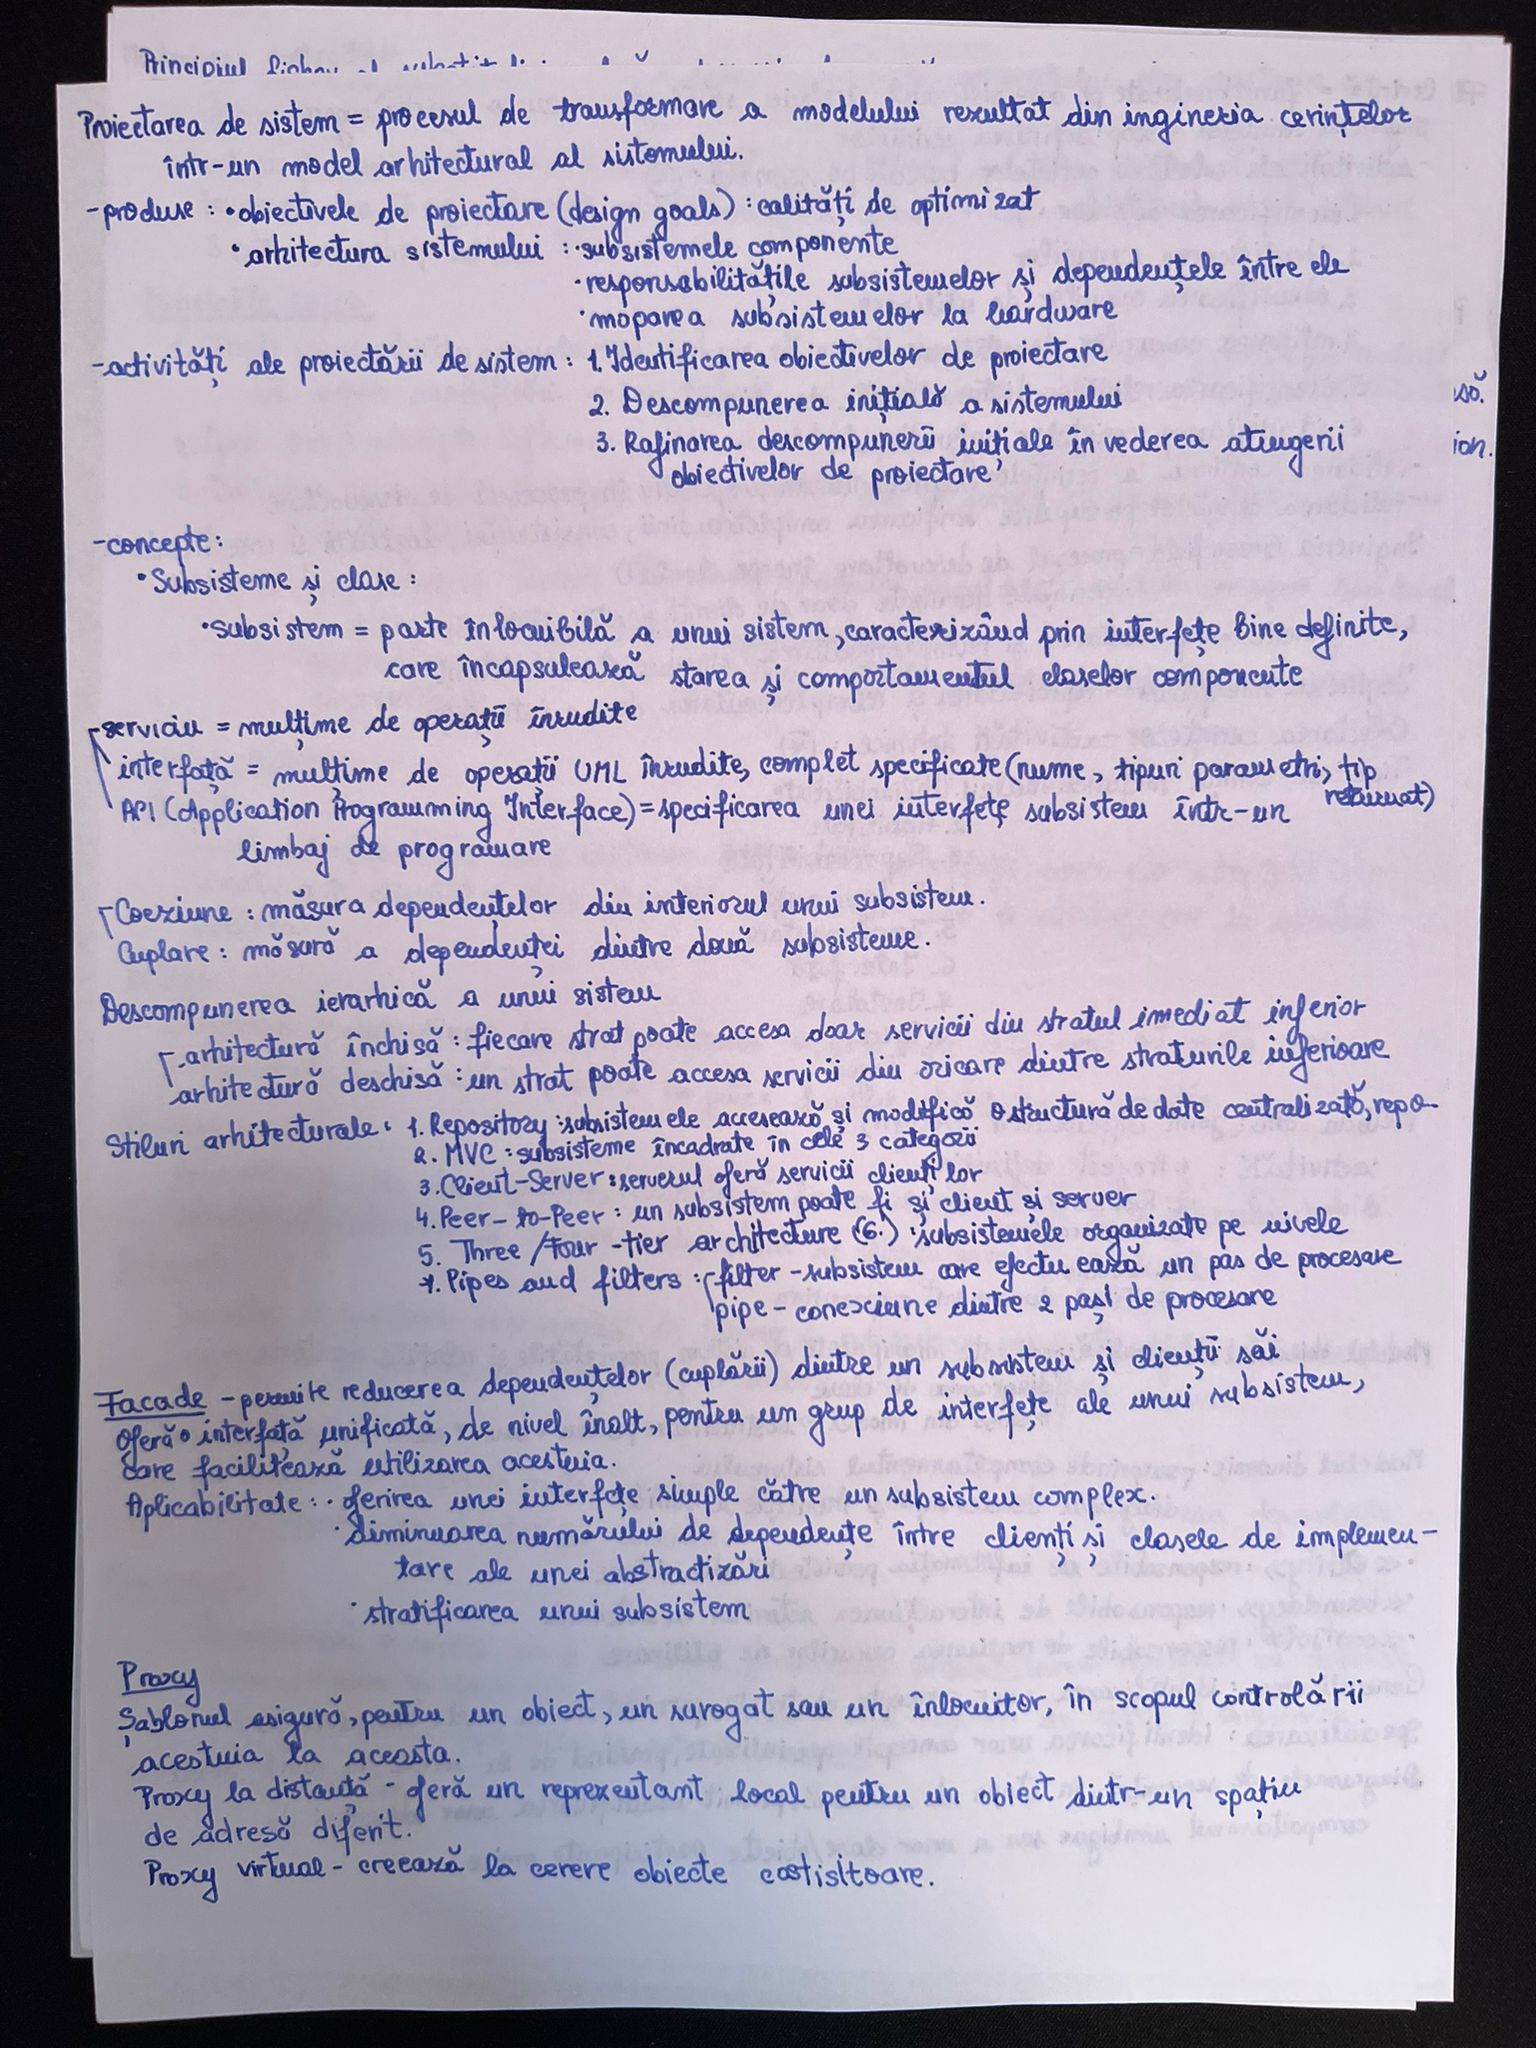 Principiul
Proiectarea de sistem = procesul de transformare a modelului rezultat din ingineria cerințelor
într-un model arhitectural al sistemului.
-produse : • obiectivele de proiectare (design goals) : calități de optimizat
• arhitectura sistemului : · subsistemele componente
· responsabilitățile subsistemelor și dependențele între ele
· maparea subsistemelor la hardware
-activități ale proiectării de sistem : 1. Identificarea obiectivelor de proiectare
2. Descompunerea inițială a sistemului
să.
3. Rafinarea descompunerii inițiale în vederea atingerii
ion.
obiectivelor de proiectare
-concepte :
• Subsisteme și clase :
• subsistem = parte înlocuibilă a unui sistem, caracterizând prin interfețe bine definite,
care încapsulează starea și comportamentul claselor componente
serviciu = mulțime de operații înrudite
interfață = mulțime de operații UML înrudite, complet specificate (nume, tipuri parametri, tip
returnat)
API (Application Programming Interface) = specificarea unei interfețe subsistem într-un
limbaj de programare
Coeziune : măsura dependențelor din interiorul unui subsistem.
Cuplare : măsură a dependenței dintre două subsisteme.
Descompunerea ierarhică a unui sistem
arhitectură închisă : fiecare strat poate accesa doar servicii din stratul imediat inferior
arhitectură deschisă : un strat poate accesa servicii din oricare dintre straturile inferioare
Stiluri arhitecturale : 1. Repository : subsistemele accesează și modifică o structură de date centralizată, repo-
2. MVC : subsisteme încadrate în cele 3 categorii
3. Client-Server : serverul oferă servicii clienților
4. Peer-to-Peer : un subsistem poate fi și client și server
5. Three/Four-tier architecture (6.) : subsistemele organizate pe nivele
7. Pipes and filters : filter - subsistem care efectuează un pas de procesare
pipe - conexiune dintre 2 pași de procesare
Facade - permite reducerea dependențelor (cuplării) dintre un subsistem și clienții săi
Oferă o interfață unificată, de nivel înalt, pentru un grup de interfețe ale unui subsistem,
care facilitează utilizarea acestuia.
Aplicabilitate : · oferirea unei interfețe simple către un subsistem complex.
· diminuarea numărului de dependențe între clienți și clasele de implemen-
tare ale unei abstractizări
· stratificarea unui subsistem
Proxy
Șablonul asigură, pentru un obiect, un surogat sau un înlocuitor, în scopul controlării
acestuia la aceasta.
Proxy la distanță - oferă un reprezentant local pentru un obiect dintr-un spațiu
de adresă diferit.
Proxy virtual - creează la cerere obiecte costisitoare.